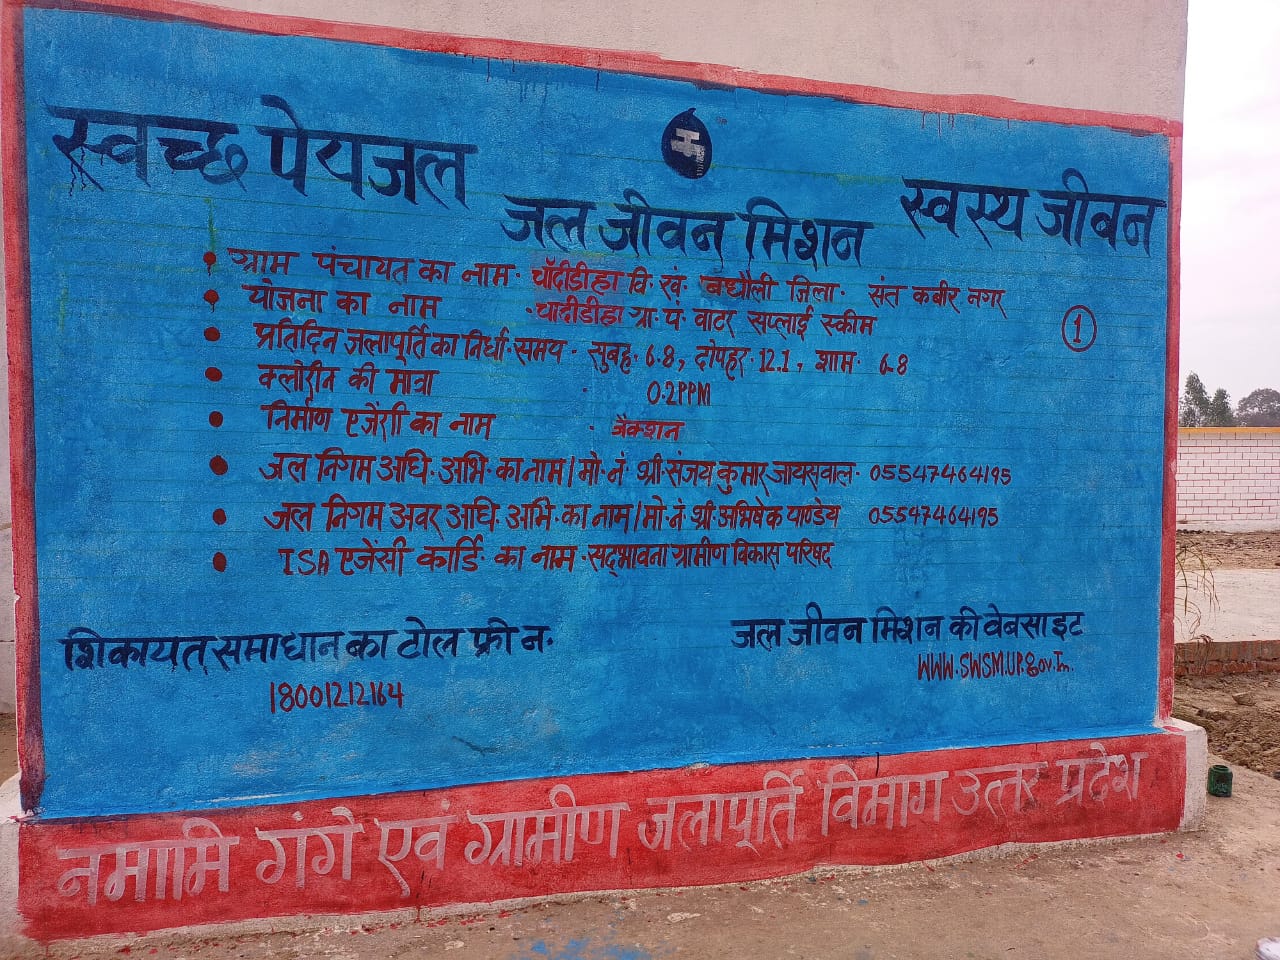 स्वच्छ पेयजल
जल जीवन मिशन
स्वस्थ जीवन
ग्राम पंचायत का नाम - चाँदीडीहा वि. खं. बघौली जिला - संत कबीर नगर
योजना का नाम - चांदीडीहा ग्रा. पं. वाटर सप्लाई स्कीम
1
प्रतिदिन जलापूर्ति का निर्धा. समय - सुबह. 6.8, दोपहर. 12.1, शाम. 6.8
क्लोरीन की मात्रा - 0.2PPM
निर्माण एजेंसी का नाम - जैक्शन
जल निगम अधि. अभि. का नाम/मो. नं. श्री संजय कुमार जायसवाल - 05547464195
जल निगम अवर अधि. अभि. का नाम/मो. नं. श्री अभिषेक पाण्डेय 05547464195
ISA एजेंसी कार्डि. का नाम - सद्भावना ग्रामीण विकास परिषद
शिकायत समाधान का टोल फ्री न.
18001212164
जल जीवन मिशन की वेबसाइट
WWW.SWSM.UP.Gov.In.
नमामि गंगे एवं ग्रामीण जलापूर्ति विभाग उत्तर प्रदेश